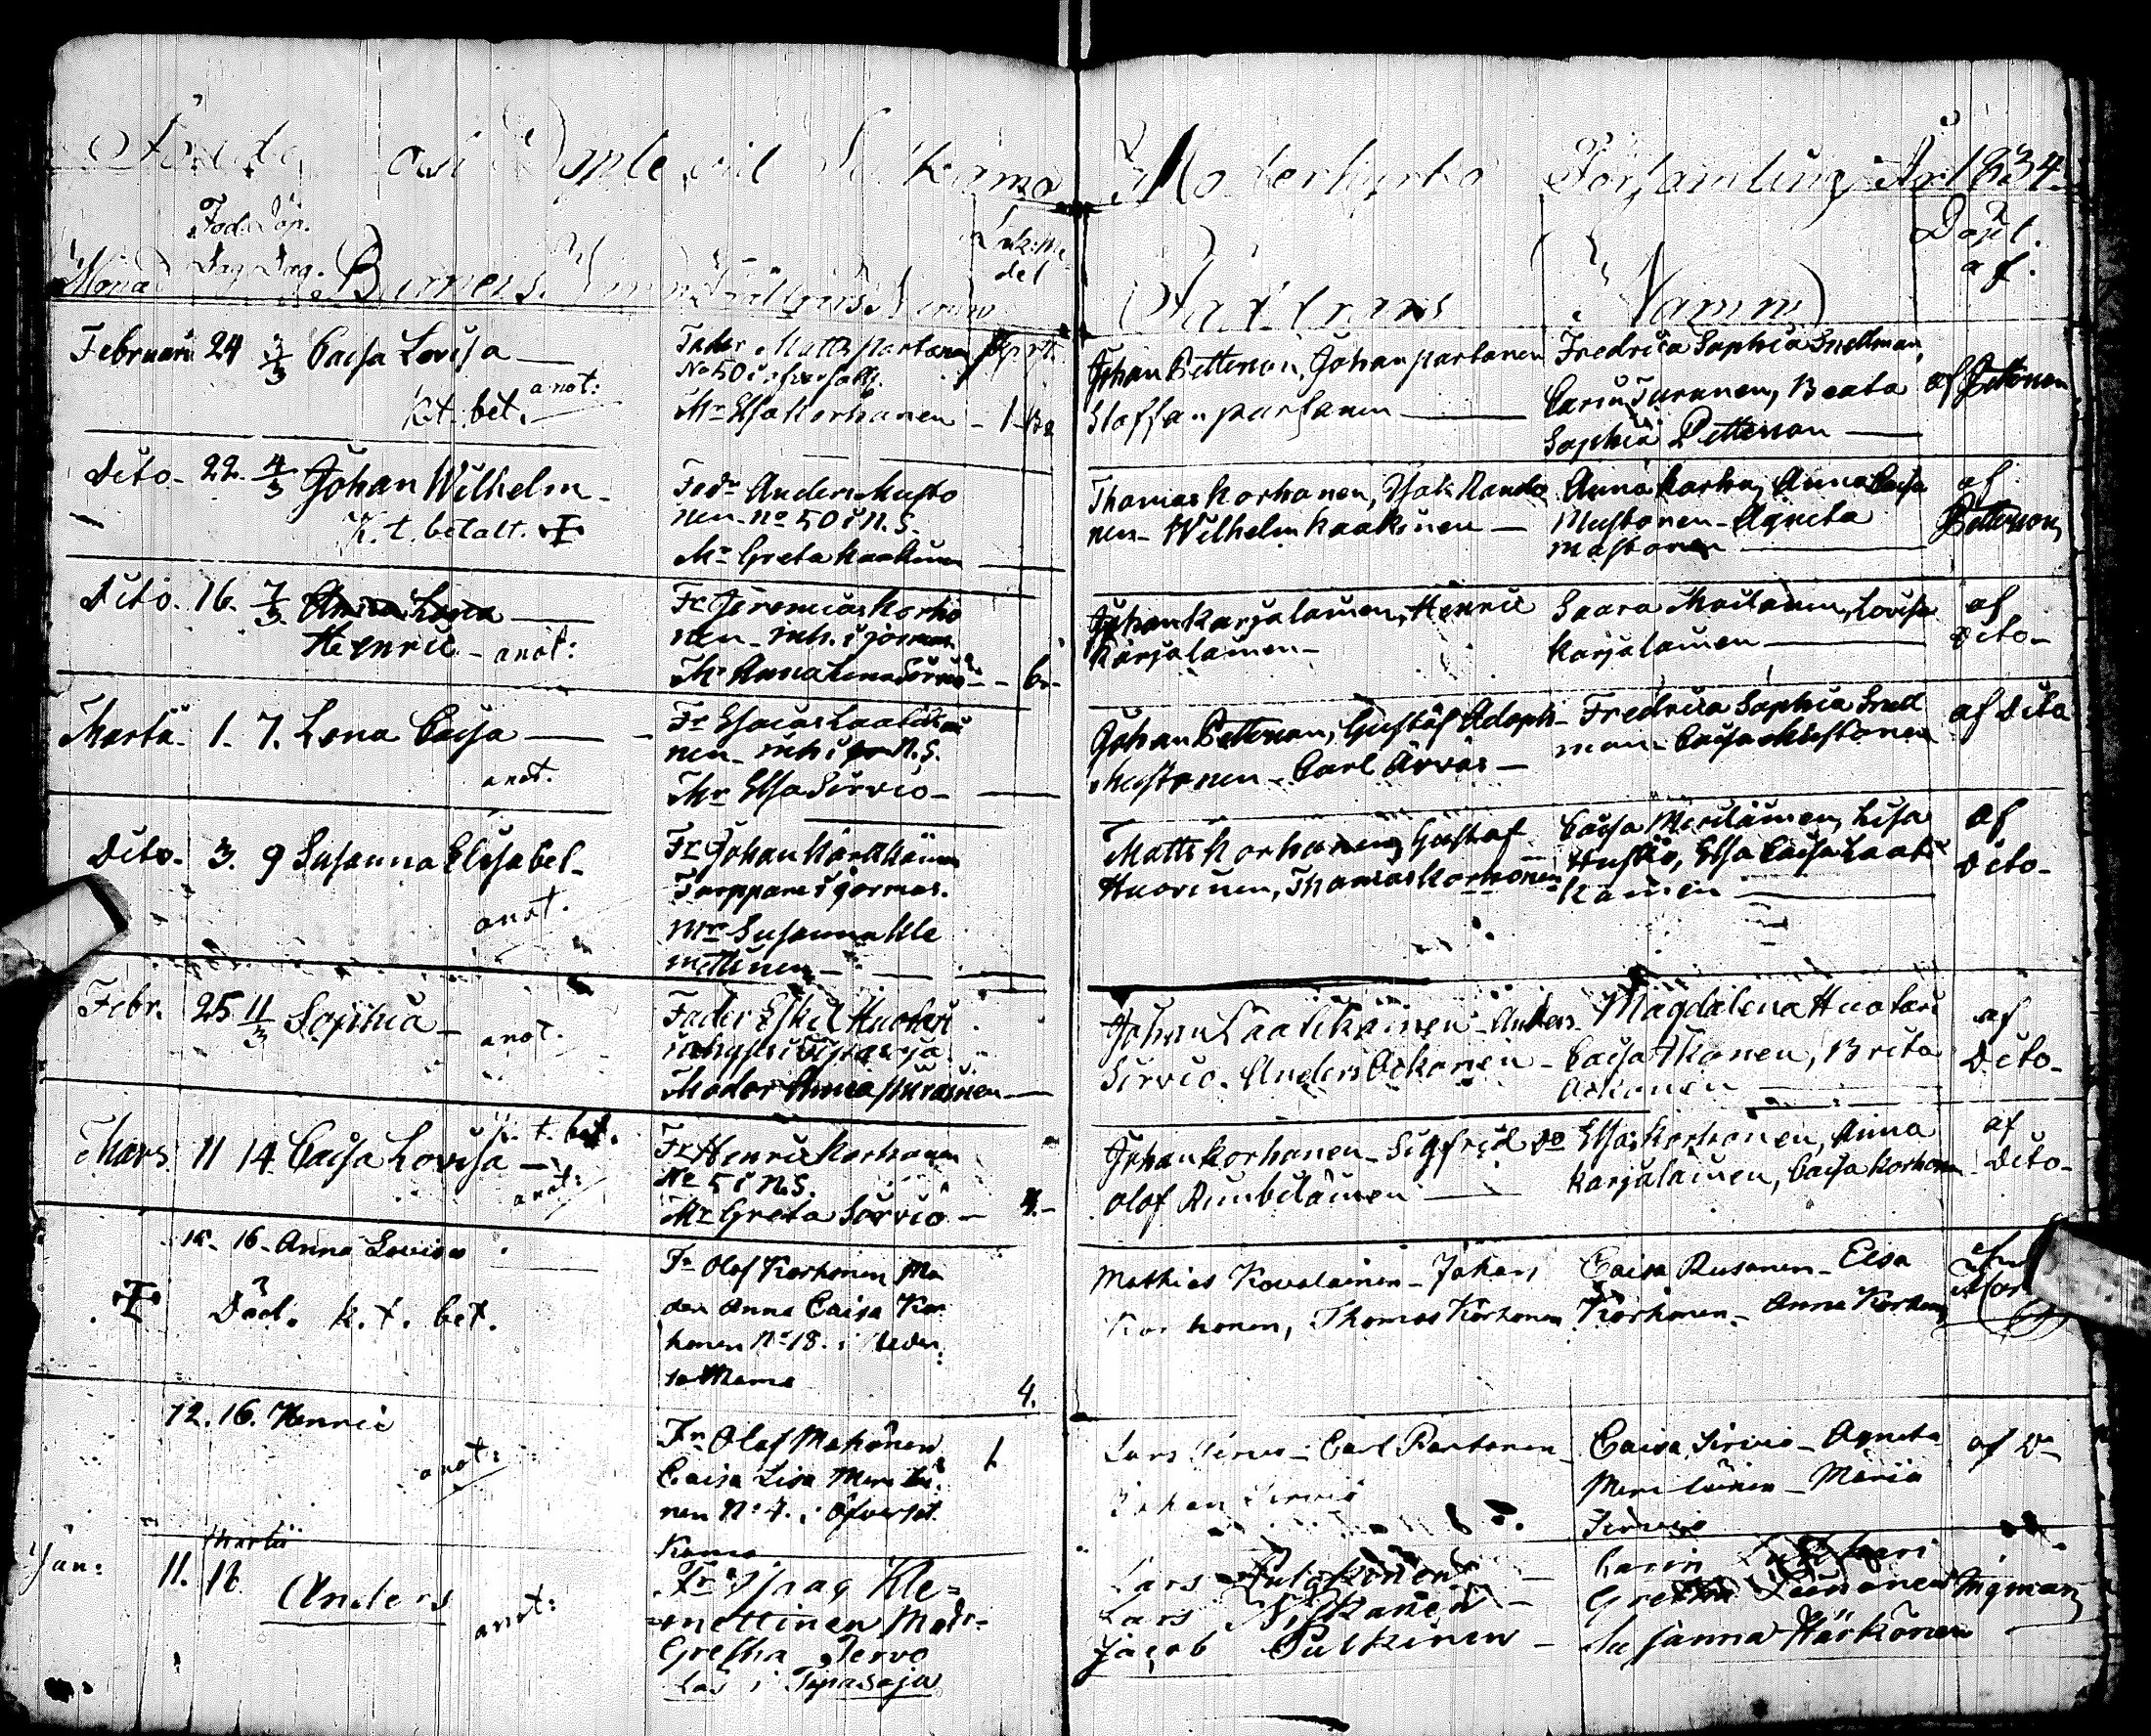 Födde och Döpte vid Sotkamo Moderkyrko Församling År 1834.
Månad Föd. Dag Döp. Dag. Barnens Namn Föräldrars Namn del Faddrars Namn Döpt af.
Februarii 24 7/3 Caisa Lovisa
anot:
K.t. bet.
Fader Matts Partanen
No 50 i
Mr Elsa Korhonen - 1
Johan Petterson, Johan partanen
Staffan partanen
Fredrica Sophia Snellman
Carin Turunen, Beata
Sophia Petterson
af Pettersson
Dito - 22. 4/3 Johan Wilhelm -
K. t. betalt.
Fadr Anders Musto
nen - No 50 i N. S.
Mr Greta Kaakinen
Thomas Korhonen, Isak
nen - Wilhelm Kaakinen -
Anna Karhu, Anna Caisa
Mustonen - Agneta
mustonen
af
Petterson
Dito. 16. 7/3
Henric - anot:
Fr Jeremias Korho
nen - inh. i jormas
Mr Anna Lena Sirviö - 6 -
Johan Karjalainen, Henric
Karjalainen -
Saara Lovisa
Karjalainen
af
Dito -
Martii - 1. 7. Lena Caisa
anot.
Fr Esaias Laatikai
nen - inh i N. S.
Mr Elsa Sirviö -
Johan Petterson, Gustaf Adoph
Mustonen - Carl Ärväs -
Fredrica Sophia Snell
man - Caisa Mustonen
af Dito
Dito. 3. 9 Susanna Elisabet -
anot.
Fr Johan
Torppare i jormas.
Mr Susanna Kle
mettinen -
Matts Korhonen, Gustaf
Huovinen, Thomas Korhonen
Caisa Meriläinen, Lisa
Elsa Caisa Laati
Kainen
af
Dito -
Febr. 25 11/3 Sophia -
anot.
Fader Eskil Huotari
i Tipasoja
Moder Anna puranen
Johan Laatikainen - Anders
Sirviö. Anders Oskonen -
Magdalena Huotari
Caisa Brita
Oskonen
af
Dito -
K. t. bet.
Mars 11 14. Caisa Lovisa
anot:
Fr Henric Korhonen
No 5 i N.S.
Mr Greta Sirviö - 4 -
Johan Korhonen - Sigfrid Do
Olof
Elsa Korhonen, Anna
Karjalainen, Caisa Korhonen
af
Dito -
15. 16 - Anna Lovisa
Död. k. t. bet.
Fr Olof Korhonen Mo
der Anna Caisa Kor
honen No 18. i Neder
4.
Mathias Kovalainen - Johan
Korhonen, Thomas Korhonen
Caisa Rusanen - Elsa
Korhonen - Anna Korhonen
12. 16. Henric
anot:
Fr Olof Mahönen
Caisa Lisa Meriläi
nen No 4. i Öfversot
Kamo
1
Lars Sirviö - Carl Partanen
Johan Sirviö
Caisa Sirviö - Agneta
Meriläinen - Maria
Sirviö
af Do
Martii
Jan: 11. 18. Anders
anot:
Fr Isaaq Kle=
=mettinen Modr-
Gretha Tervo
Los i Tipasoja
Lars
Lars
Jacob Pulkinen -
Carin
Gretha
Susanna Härkönen
Wigman